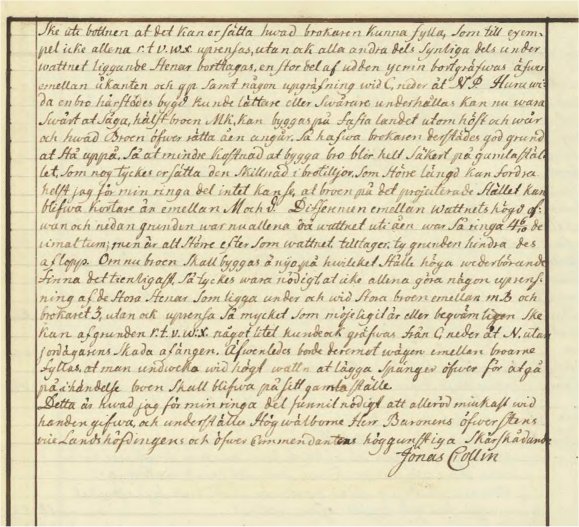 Ske utc bottnen at det kan ersätta hwad brokaren kunna fylla, Som till exem-
pel icke allena r.t.v.w.x uprensas, utan ock alla andra dels Synliga dels under
wattnet liggande Stenar borttagas, en stor del af udden ycnin bortgräfwas äfwen
emellan åkanten och yp Samt någon upgräfning wid C, neder åt N.P. Huruwi-
da en bro härstädes bygd kunde lättare eller Swårare underhållas kan nu wara
Swårt at Säga, hälst broen MK, kan byggas på Fasta landet utom höft och wäer
och hwad Broen öfwer rätta åen angår, Så hafwa brokaren derstädes god grund
at Stå uppå, Så at mindre kostnad at bygga bro blir helt Säkert på gamla stäl-
let, Som nog tyckes ersätta den Skillnad i brotilljor, Som Större längd kan fordra
helst jag för min ringa del intet kan se, at broen på det projecterade Stället kan
blifwa kortare än emellan M och V. Differencen emellan wattnets högd of-
wan och nedan grunden war nu allena då wattnet uti åen war Så ringa 4 6/10 de
cimal tum; men är alt Större efter Som wattnet tilltager, ty grunden hindra des
aflopp. Om nu broen Skall byggas å nyo, på hwilcket Ställe höga wederbörande
finna det tienligast, Så tyckes wara nödigt at icke allena göra någon uprens-
ning af de Stora Stenar Som ligga under och wid Stora broen emellan m.B och
brokaret 3, utan ock uprensa Så mycket Som möjeligit är eller beqvämligen Ske
kan af grunden r.t.v.w.x. något litet kunde ock gräfwas från C neder åt N. utan
jordägarens Skada afängen. Äfwenledes borde deremot wägen emellan broarne
fyllas, at man undweke wid högt wattn at lägga Spänger öfwer för at gå
på, i händelse broen Skall blifwa på sitt gamla ställe.
Detta är hwad jag för min ringa del funnit nödigt att allerödmiukast wid
handen gifwa, och underställes Högwälborne Herr Baronens öfwerstens
vice Landshöfdingens och öfwer Commendantens höggunstiga Skärskådande
Jonas Collin